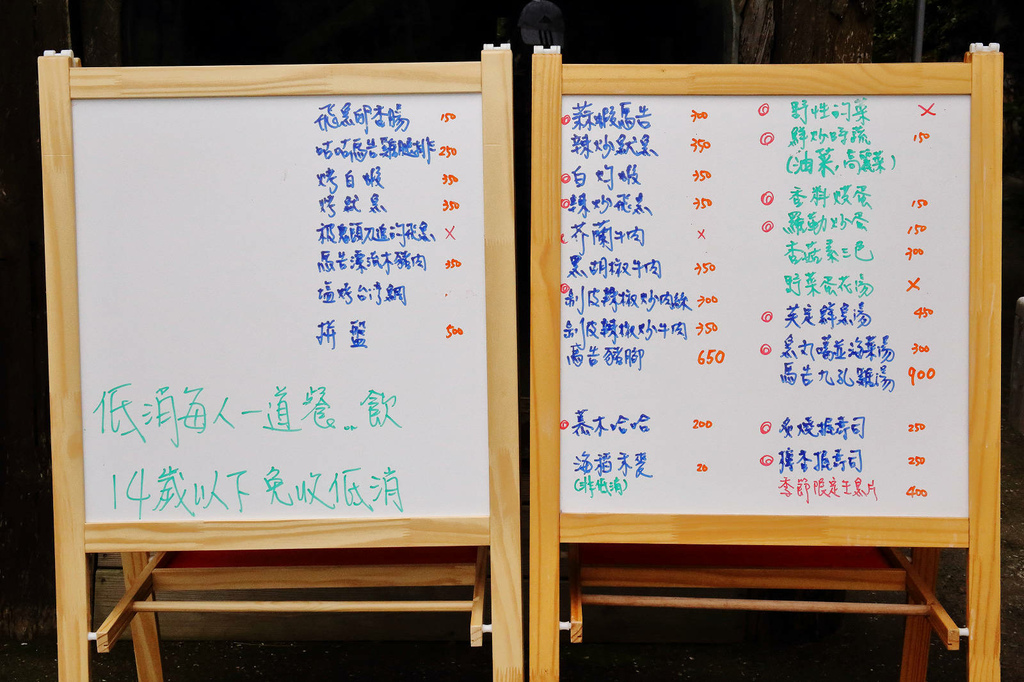 飛魚卵香腸 150
咕咕馬告雞腿排 250
烤白蝦 350
烤魷魚 350
被鬼頭刀追的飛魚 X
馬告漂流木豬肉 350
塩烤台湾鯛
拼盤 500
低消每人一道餐..飲
14歲以下免收低消
蒜蝦馬告 300
辣炒魷魚 350
白灼蝦 350
辣炒飛魚 350
芥蘭牛肉 X
黑胡椒牛肉 350
剝皮辣椒炒肉絲 300
剝皮辣椒炒牛肉 350
馬告豬腳 650
慕木哈哈 200
海稻禾粳 20
(非低消)
野性的菜 X
鮮炒時蔬 150
(油菜,高麗菜)
香料烘蛋 150
羅勒炒蛋 150
香菇素三色 300
野菜蛋花湯 X
芙定鮮魚湯 450
魚丸噶並海菜湯 300
馬告九孔雞湯 900
炙燒握壽司 250
握壽司 250
季節限定生魚片 400